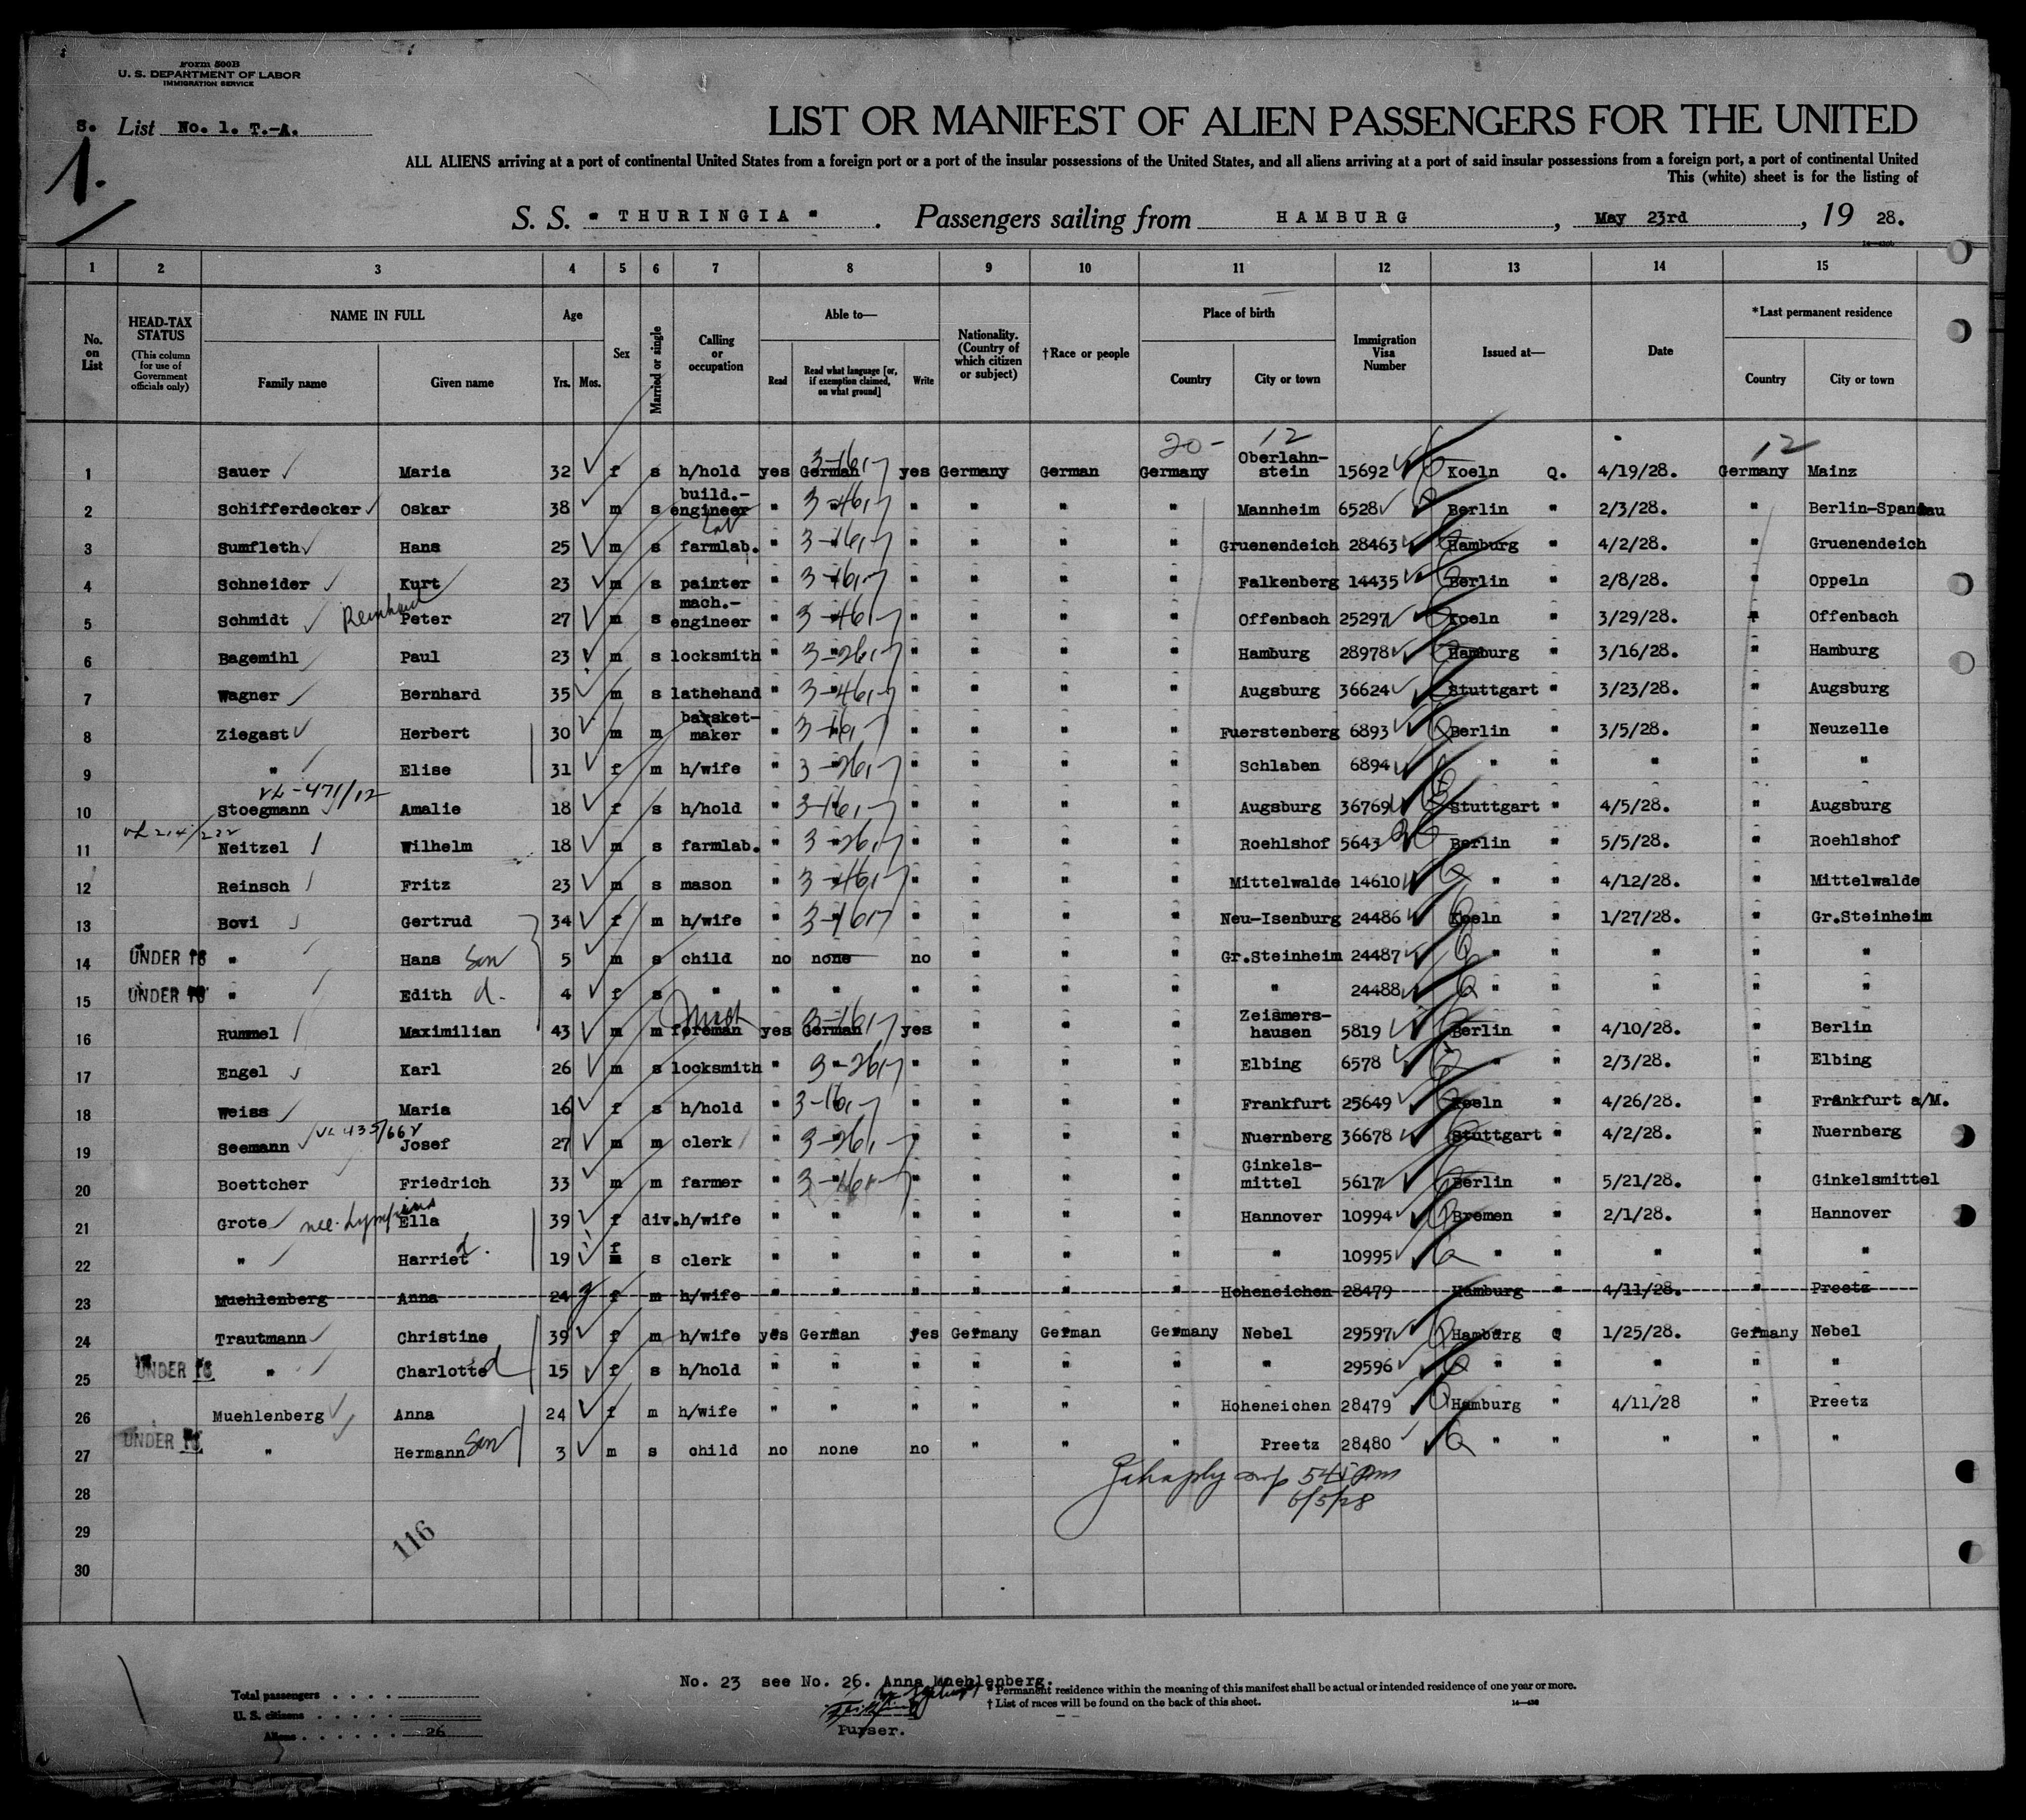 Form 500B
U. S. DEPARTMENT OF LABOR
IMMIGRATION SERVICE
S. List No. 1. T.-A.
1.
LIST OR MANIFEST OF ALIEN PASSENGERS FOR THE UNITED
ALL ALIENS arriving at a port of continental United States from a foreign port or a port of the insular possessions of the United States, and all aliens arriving at a port of said insular possessions from a foreign port, a port of continental United
This (white) sheet is for the listing of
S. S. " THURINGIA " . Passengers sailing from HAMBURG , May 23rd , 19 28.
1 2 3 4 5 6 7 8 9 10 11 12 13 14 15
No. on List HEAD-TAX STATUS (This column for use of Government officials only) NAME IN FULL Family name Given name Age Yrs. Mos. Sex Married or single Calling or occupation Able to— Read Read what language [or, if exemption claimed, on what ground] Write Nationality. (Country of which citizen or subject) †Race or people Place of birth Country City or town Immigration Visa Number Issued at— Date *Last permanent residence Country City or town
20- 12 12
1 Sauer Maria 32 f s h/hold yes German 3-16,7 yes Germany German Germany Oberlahn-stein 15692 Koeln Q. 4/19/28. Germany Mainz
2 Schifferdecker Oskar 38 m s build.-engineer " " 3-46,7 " " " " Mannheim 6528 Berlin " 2/3/28. " Berlin-Spandau
3 Sumfleth Hans 25 m s farmlab. Lab " " 3-16,7 " " " " Gruenendeich 28463 Hamburg " 4/2/28. " Gruenendeich
4 Schneider Kurt 23 m s painter " " 3-16,7 " " " " Falkenberg 14435 Berlin " 2/8/28. " Oppeln
5 Schmidt Reinhard Peter 27 m s mach.-engineer " " 3-46,7 " " " " Offenbach 25297 Koeln " 3/29/28. " Offenbach
6 Bagemihl Paul 23 m s locksmith " " 3-26,7 " " " " Hamburg 28978 Hamburg " 3/16/28. " Hamburg
7 Wagner Bernhard 35 m s lathehand " " 3-46,7 " " " " Augsburg 36624 Stuttgart " 3/23/28. " Augsburg
8 Ziegast Herbert 30 m m basket-maker " " 3-16,7 " " " " Fuerstenberg 6893 Berlin " 3/5/28. " Neuzelle
9 " Elise 31 f m h/wife " " 3-26,7 " " " " Schlaben 6894 " " " " "
VL-471/12
10 Stoegmann Amalie 18 f s h/hold " " 3-16,7 " " " " Augsburg 36769 Stuttgart " 4/5/28. " Augsburg
11 Neitzel Wilhelm 18 m s farmlab. " " 3-26,7 " " " " Roehlshof 5643 Berlin " 5/5/28. " Roehlshof
12 Reinsch Fritz 23 m s mason " " 3-46,7 " " " " Mittelwalde 14610 " " 4/12/28. " Mittelwalde
13 Bovi Gertrud 34 f m h/wife " " 3-16,7 " " " " Neu-Isenburg 24486 Koeln " 1/27/28. " Gr.Steinheim
14 UNDER 16 " Hans Son 5 m s child no none no " " " Gr.Steinheim 24487 " " " " "
15 UNDER 16 " Edith d. 4 f s " " " " " " " " 24488 " " " " "
16 Rummel Maximilian 43 m m foreman yes German 3-16,7 yes " " " Zeismers-hausen 5819 Berlin " 4/10/28. " Berlin
17 Engel Karl 26 m s locksmith " " 3-26,7 " " " " Elbing 6578 " " 2/3/28. " Elbing
18 Weiss Maria 16 f s h/hold " " 3-16,7 " " " " Frankfurt 25649 Koeln " 4/26/28. " Frankfurt a/M.
19 Seemann Josef 27 m m clerk " " 3-26,7 " " " " Nuernberg 36678 Stuttgart " 4/2/28. " Nuernberg
20 Boettcher Friedrich 33 m m farmer " " 3-16,7 " " " " Ginkels-mittel 5617 Berlin " 5/21/28. " Ginkelsmittel
21 Grote nee Ella 39 f div. h/wife " " " " " " Hannover 10994 Bremen " 2/1/28. " Hannover
22 " Harriet d. 19 f m s clerk " " " " " " " 10995 " " " " "
23 Muehlenberg Anna 24 f m h/wife " " " " " " Hoheneichen 28479 Hamburg " 4/11/28. " Preetz
24 Trautmann Christine 39 f m h/wife yes German yes Germany German Germany Nebel 29597 Hamburg Q 1/25/28. Germany Nebel
25 UNDER 16 " Charlotte d 15 f s h/hold " " " " " " " 29596 " " " " "
26 Muehlenberg Anna 24 f m h/wife " " " " " " Hoheneichen 28479 Hamburg " 4/11/28 " Preetz
27 UNDER 16 " Hermann Son 3 m s child no none no " " " Preetz 28480 " " " " "
28 6/5/28
29 116
30
No. 23 see No. 26. Anna Muehlenberg.
Purser.
Total passengers . . . .
U. S. citizens . . . . .
Aliens . . . . . . 26
* Permanent residence within the meaning of this manifest shall be actual or intended residence of one year or more.
† List of races will be found on the back of this sheet.